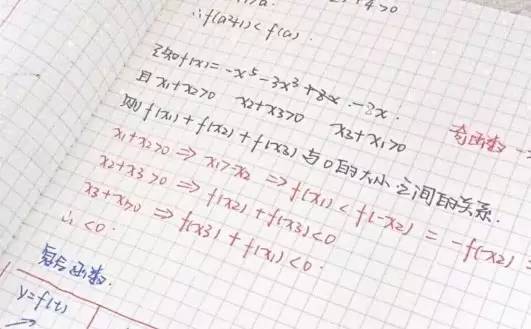 +4>0
∴f(a²+1)<f(a).
已知f(x)=-x⁵-3x³+8x-8x.
且x₁+x₂>0 x₂+x₃>0 x₃+x₁>0
则f(x₁)+f(x₂)+f(x₃)与0的大小之间的关系.
奇函数
x₁+x₂>0⇒x₁>-x₂⇒f(x₁)<f(-x₂)=-f(x₂)
x₂+x₃>0⇒f(x₂)+f(x₃)<0
x₃+x₁>0⇒f(x₃)+f(x₁)<0.
∴<0.
复合函数.
y=f(t)